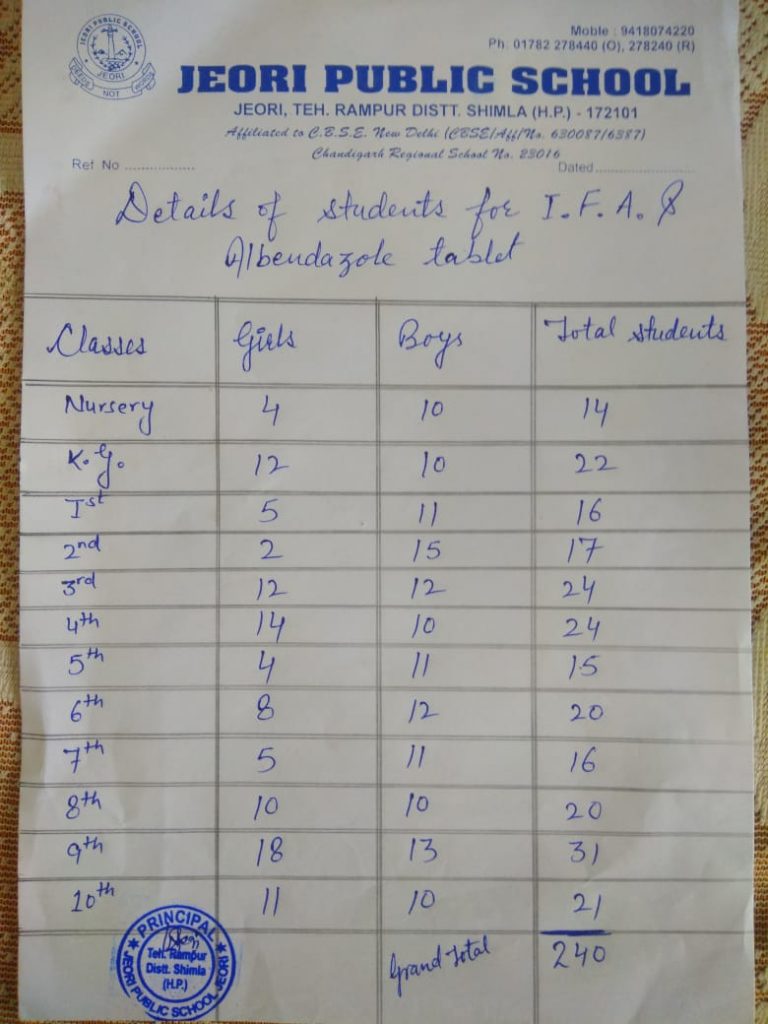 Moble : 9418074220
Ph: 01782 278440 (O), 278240 (R)
JEORI PUBLIC SCHOOL
JEORI
NOT
JEORI PUBLIC SCHOOL
JEORI, TEH. RAMPUR DISTT. SHIMLA (H.P.) - 172101
Affiliated to C.B.S.E. New Delhi (CBSE/Aff/No. 630087/6387)
Chandigarh Regional School No. 23016
Ref No ................
Dated........................
Details of students for I.F.A. &
Albendazole tablet
Classes Girls Boys Total students
Nursery 4 10 14
K.G. 12 10 22
Ist 5 11 16
2nd 2 15 17
3rd 12 12 24
4th 14 10 24
5th 4 11 15
6th 8 12 20
7th 5 11 16
8th 10 10 20
9th 18 13 31
10th 11 10 21
Grand Total 240
PRINCIPAL
Teh. Rampur
Distt. Shimla
(H.P.)
JEORI PUBLIC SCHOOL JEORI